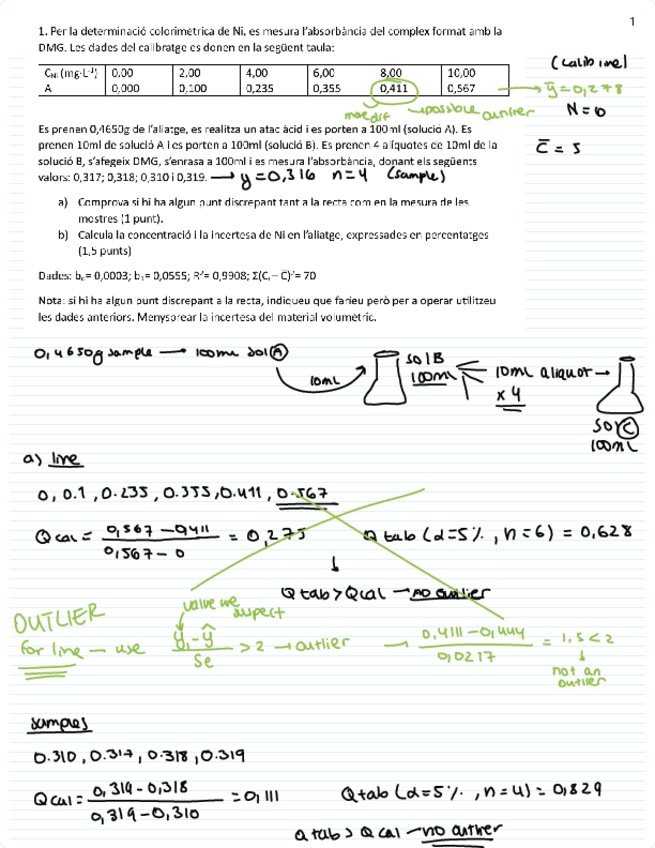 1
1. Per la determinació colorimètrica de Ni, es mesura l'absorbància del complex format amb la
DMG. Les dades del calibratge es donen en la següent taula:
C Ni (mg·L⁻¹) 0,00 2,00 4,00 6,00 8,00 10,00
A 0,000 0,100 0,235 0,355 0,411 0,567
(calib line)
ȳ=0,278
possible outlier
N=6
C̄ = 5
Es prenen 0,4650g de l'aliatge, es realitza un atac àcid i es porten a 100ml (solució A). Es
prenen 10ml de solució A i es porten a 100ml (solució B). Es prenen 4 alíquotes de 10ml de la
solució B, s'afegeix DMG, s'enrasa a 100ml i es mesura l'absorbància, donant els següents
valors: 0,317; 0,318; 0,310 i 0,319. → y=0,316 n=4 (sample)
a) Comprova si hi ha algun punt discrepant tant a la recta com en la mesura de les
mostres (1 punt).
b) Calcula la concentració i la incertesa de Ni en l'aliatge, expressades en percentatges
(1,5 punts)
Dades: b₀= 0,0003; b₁= 0,0555; R²= 0,9908; Σ(Cᵢ – C̄)²= 70
Nota: si hi ha algun punt discrepant a la recta, indiqueu que faríeu però per a operar utilitzeu
les dades anteriors. Menysprear la incertesa del material volumètric.
0,4650g sample → 100mL sol A
10mL
sol B
100mL
10mL aliquot →
x 4
sol C
100mL
a) line
0, 0.1, 0.235, 0.355, 0.411, 0.567
Qcal = 0,567 - 0,411 / 0,567 - 0 = 0,275
Q tab (α=5%, n=6) = 0,628
↓
Q tab > Qcal → no outlier
OUTLIER
for line → use
value we suspect
yᵢ - ŷ / Se > 2 → outlier
→ 0,4111 - 0,444 / 0,0217 = 1,5 < 2
↓
not an
outlier
samples
0.310, 0.317, 0.318, 0.319
Q cal = 0,319 - 0,318 / 0,319 - 0,310 = 0,111
Q tab (α=5%, n=4) = 0,829
Q tab > Q cal → no outlier